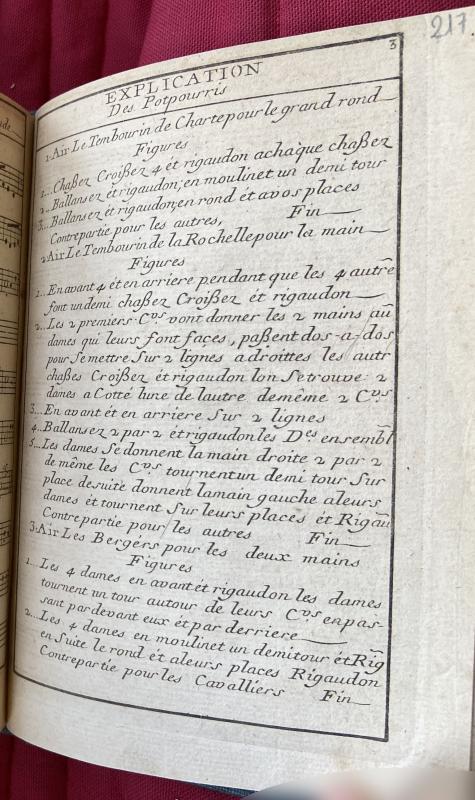 217.
3
EXPLICATION
Des Potpourris
1. Air Le Tembourin de Charte pour le grand rond
Figures
1... Chaßez Croißez 4 ét rigaudon achaque chaßez
2.. Ballansez ét rigaudon, en moulinet un demi tour
3... Ballansez ét rigaudon, en rond ét avos places
Contrepartie pour les autres, Fin
2 Air Le Tembourin de la Rochelle pour la main
Figures
1.. En avant 4 ét en arriere pendant que les 4 autre
font un demi chaßez Croißez ét rigaudon
2.. Les 2 premiers C.vs vont donner les 2 mains aū
dames qui leurs font façes, paßent dos-a-dos
pour Se mettre Sur 2 lignes a droittes les autr
chaßes Croißez ét rigaudon lon Se trouve 2
dames a Cotté lune de lautre de même 2 C.vs
3... En avant ét en arriere Sur 2 lignes
4.. Ballansez 2 par 2 ét rigaudon les D.es ensembl
5... Les dames Se donnent la main droite 2 par 2
de même les C.vs tournent un demi tour Sur
place de suite donnent la main gauche a leurs
dames ét tournent Sur leurs places ét Rigau
Contrepartie pour les autres Fin
3. Air Les Bergérs pour les deux mains
Figures
1... Les 4 dames en avant ét rigaudon les dames
tournent un tour autour de leurs C.vs en pas-
sant par devant eux ét par derriere
2... Les 4 dames en moulinet un demi tour ét Rig
en Suite le rond ét a leurs places Rigaudon
Contrepartie pour les Cavalliers Fin